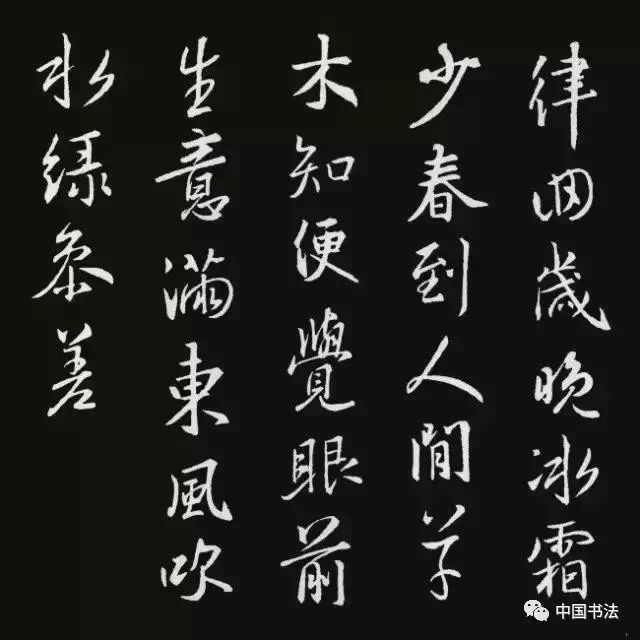 律囬歲晚冰霜
少春到人間草
木知便覺眼前
生意滿東風吹
水緑叅差
中国书法